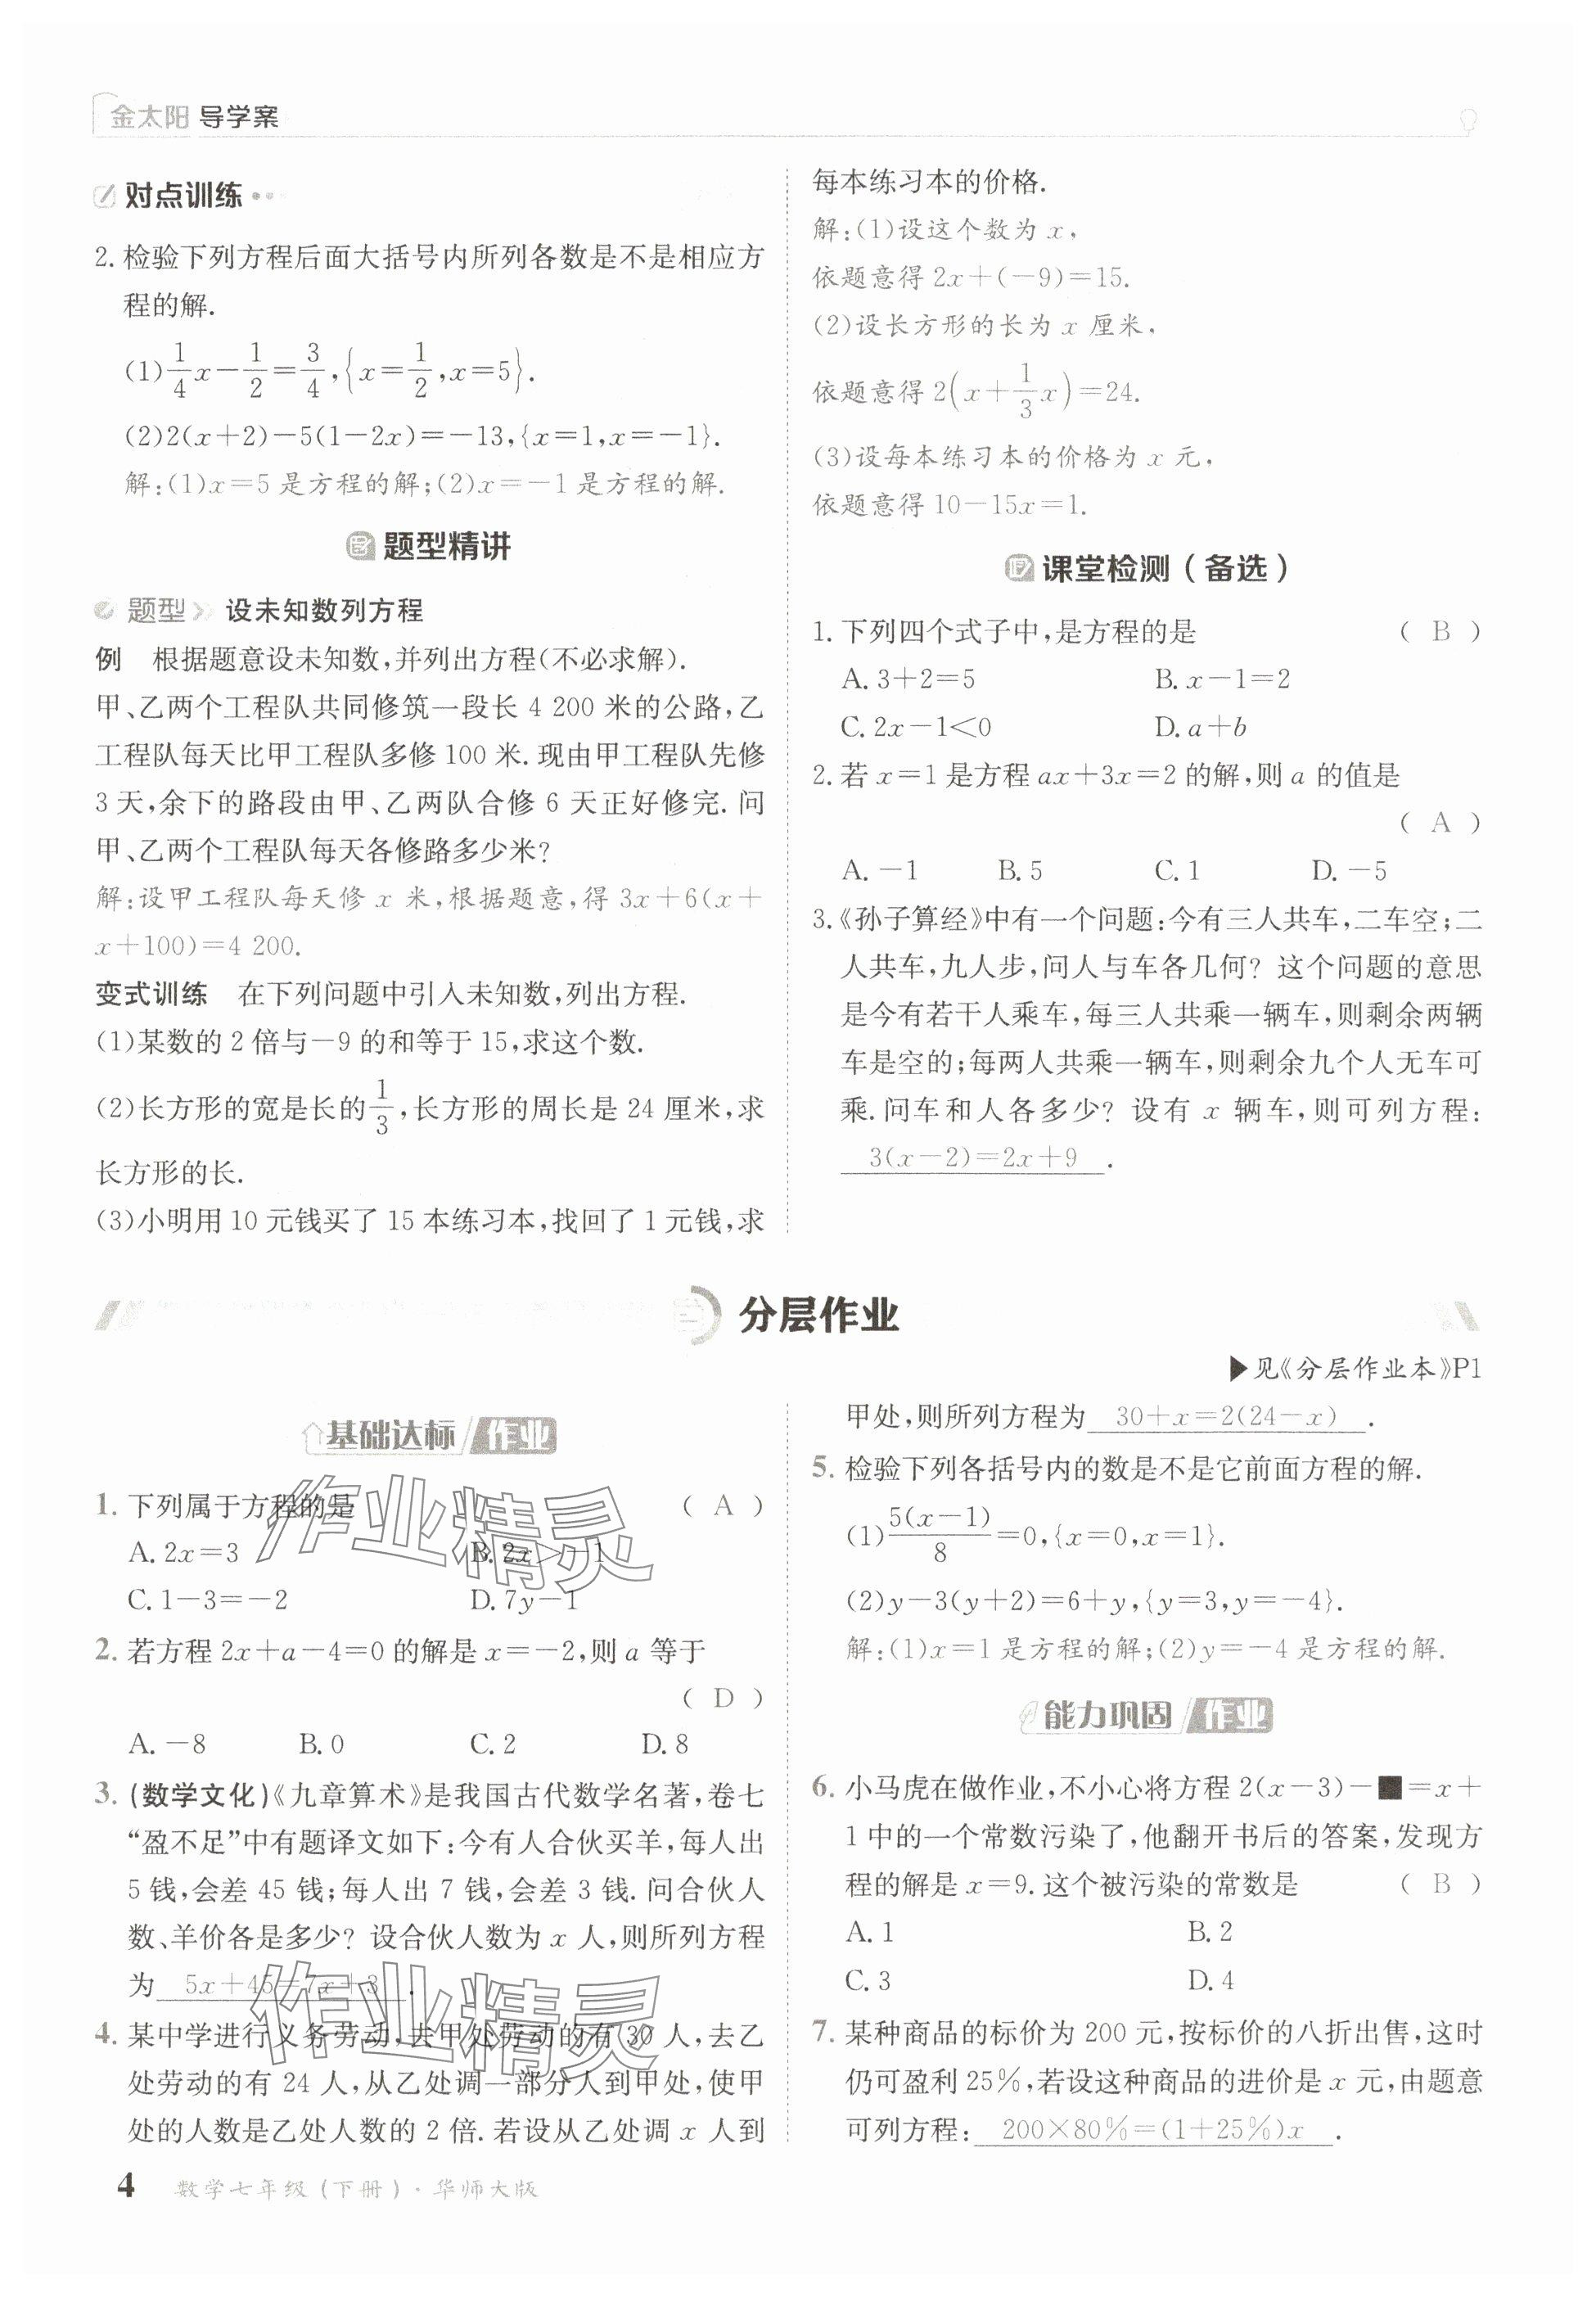 金太阳 导学案
对点训练
2. 检验下列方程后面大括号内所列各数是不是相应方
程的解.
(1)1/4x-1/2=3/4,{x=1/2,x=5}.
(2)2(x+2)-5(1-2x)=-13,{x=1,x=-1}.
解:(1)x=5 是方程的解;(2)x=-1 是方程的解.
题型精讲
题型 设未知数列方程
例 根据题意设未知数,并列出方程(不必求解).
甲、乙两个工程队共同修筑一段长 4 200 米的公路,乙
工程队每天比甲工程队多修 100 米. 现由甲工程队先修
3 天,余下的路段由甲、乙两队合修 6 天正好修完. 问
甲、乙两个工程队每天各修路多少米?
解:设甲工程队每天修 x 米,根据题意,得 3x+6(x+
x+100)=4 200.
变式训练 在下列问题中引入未知数,列出方程.
(1)某数的 2 倍与-9 的和等于 15,求这个数.
(2)长方形的宽是长的1/3,长方形的周长是 24 厘米,求
长方形的长.
(3)小明用 10 元钱买了 15 本练习本,找回了 1 元钱,求
每本练习本的价格.
解:(1)设这个数为 x,
依题意得 2x+(-9)=15.
(2)设长方形的长为 x 厘米,
依题意得 2(x+1/3x)=24.
(3)设每本练习本的价格为 x 元,
依题意得 10-15x=1.
课堂检测(备选)
1. 下列四个式子中,是方程的是 ( B )
A. 3+2=5 B. x-1=2
C. 2x-1<0 D. a+b
2. 若 x=1 是方程 ax+3x=2 的解,则 a 的值是
( A )
A. -1 B. 5 C. 1 D. -5
3.《孙子算经》中有一个问题:今有三人共车,二车空;二
人共车,九人步,问人与车各几何? 这个问题的意思
是今有若干人乘车,每三人共乘一辆车,则剩余两辆
车是空的;每两人共乘一辆车,则剩余九个人无车可
乘. 问车和人各多少? 设有 x 辆车,则可列方程:
3(x-2)=2x+9 .
分层作业
▶见《分层作业本》P1
基础达标 作业
1. 下列属于方程的是 ( A )
A. 2x=3 B. 2x>-1
C. 1-3=-2 D. 7y-1
2. 若方程 2x+a-4=0 的解是 x=-2,则 a 等于
( D )
A. -8 B. 0 C. 2 D. 8
3. (数学文化)《九章算术》是我国古代数学名著,卷七
“盈不足”中有题译文如下:今有人合伙买羊,每人出
5 钱,会差 45 钱;每人出 7 钱,会差 3 钱. 问合伙人
数、羊价各是多少? 设合伙人数为 x 人,则所列方程
为 5x+45=7x+3 .
4. 某中学进行义务劳动,去甲处劳动的有 30 人,去乙
处劳动的有 24 人,从乙处调一部分人到甲处,使甲
处的人数是乙处人数的 2 倍. 若设从乙处调 x 人到
甲处,则所列方程为 30+x=2(24-x) .
5. 检验下列各括号内的数是不是它前面方程的解.
(1)5(x-1)/8=0,{x=0,x=1}.
(2)y-3(y+2)=6+y,{y=3,y=-4}.
解:(1)x=1 是方程的解;(2)y=-4 是方程的解.
能力巩固 作业
6. 小马虎在做作业,不小心将方程 2(x-3)-■=x+
1 中的一个常数污染了,他翻开书后的答案,发现方
程的解是 x=9. 这个被污染的常数是 ( B )
A. 1 B. 2
C. 3 D. 4
7. 某种商品的标价为 200 元,按标价的八折出售,这时
仍可盈利 25%,若设这种商品的进价是 x 元,由题意
可列方程: 200×80%=(1+25%)x .
作业精灵
作业精灵
4 数学七年级(下册)·华师大版